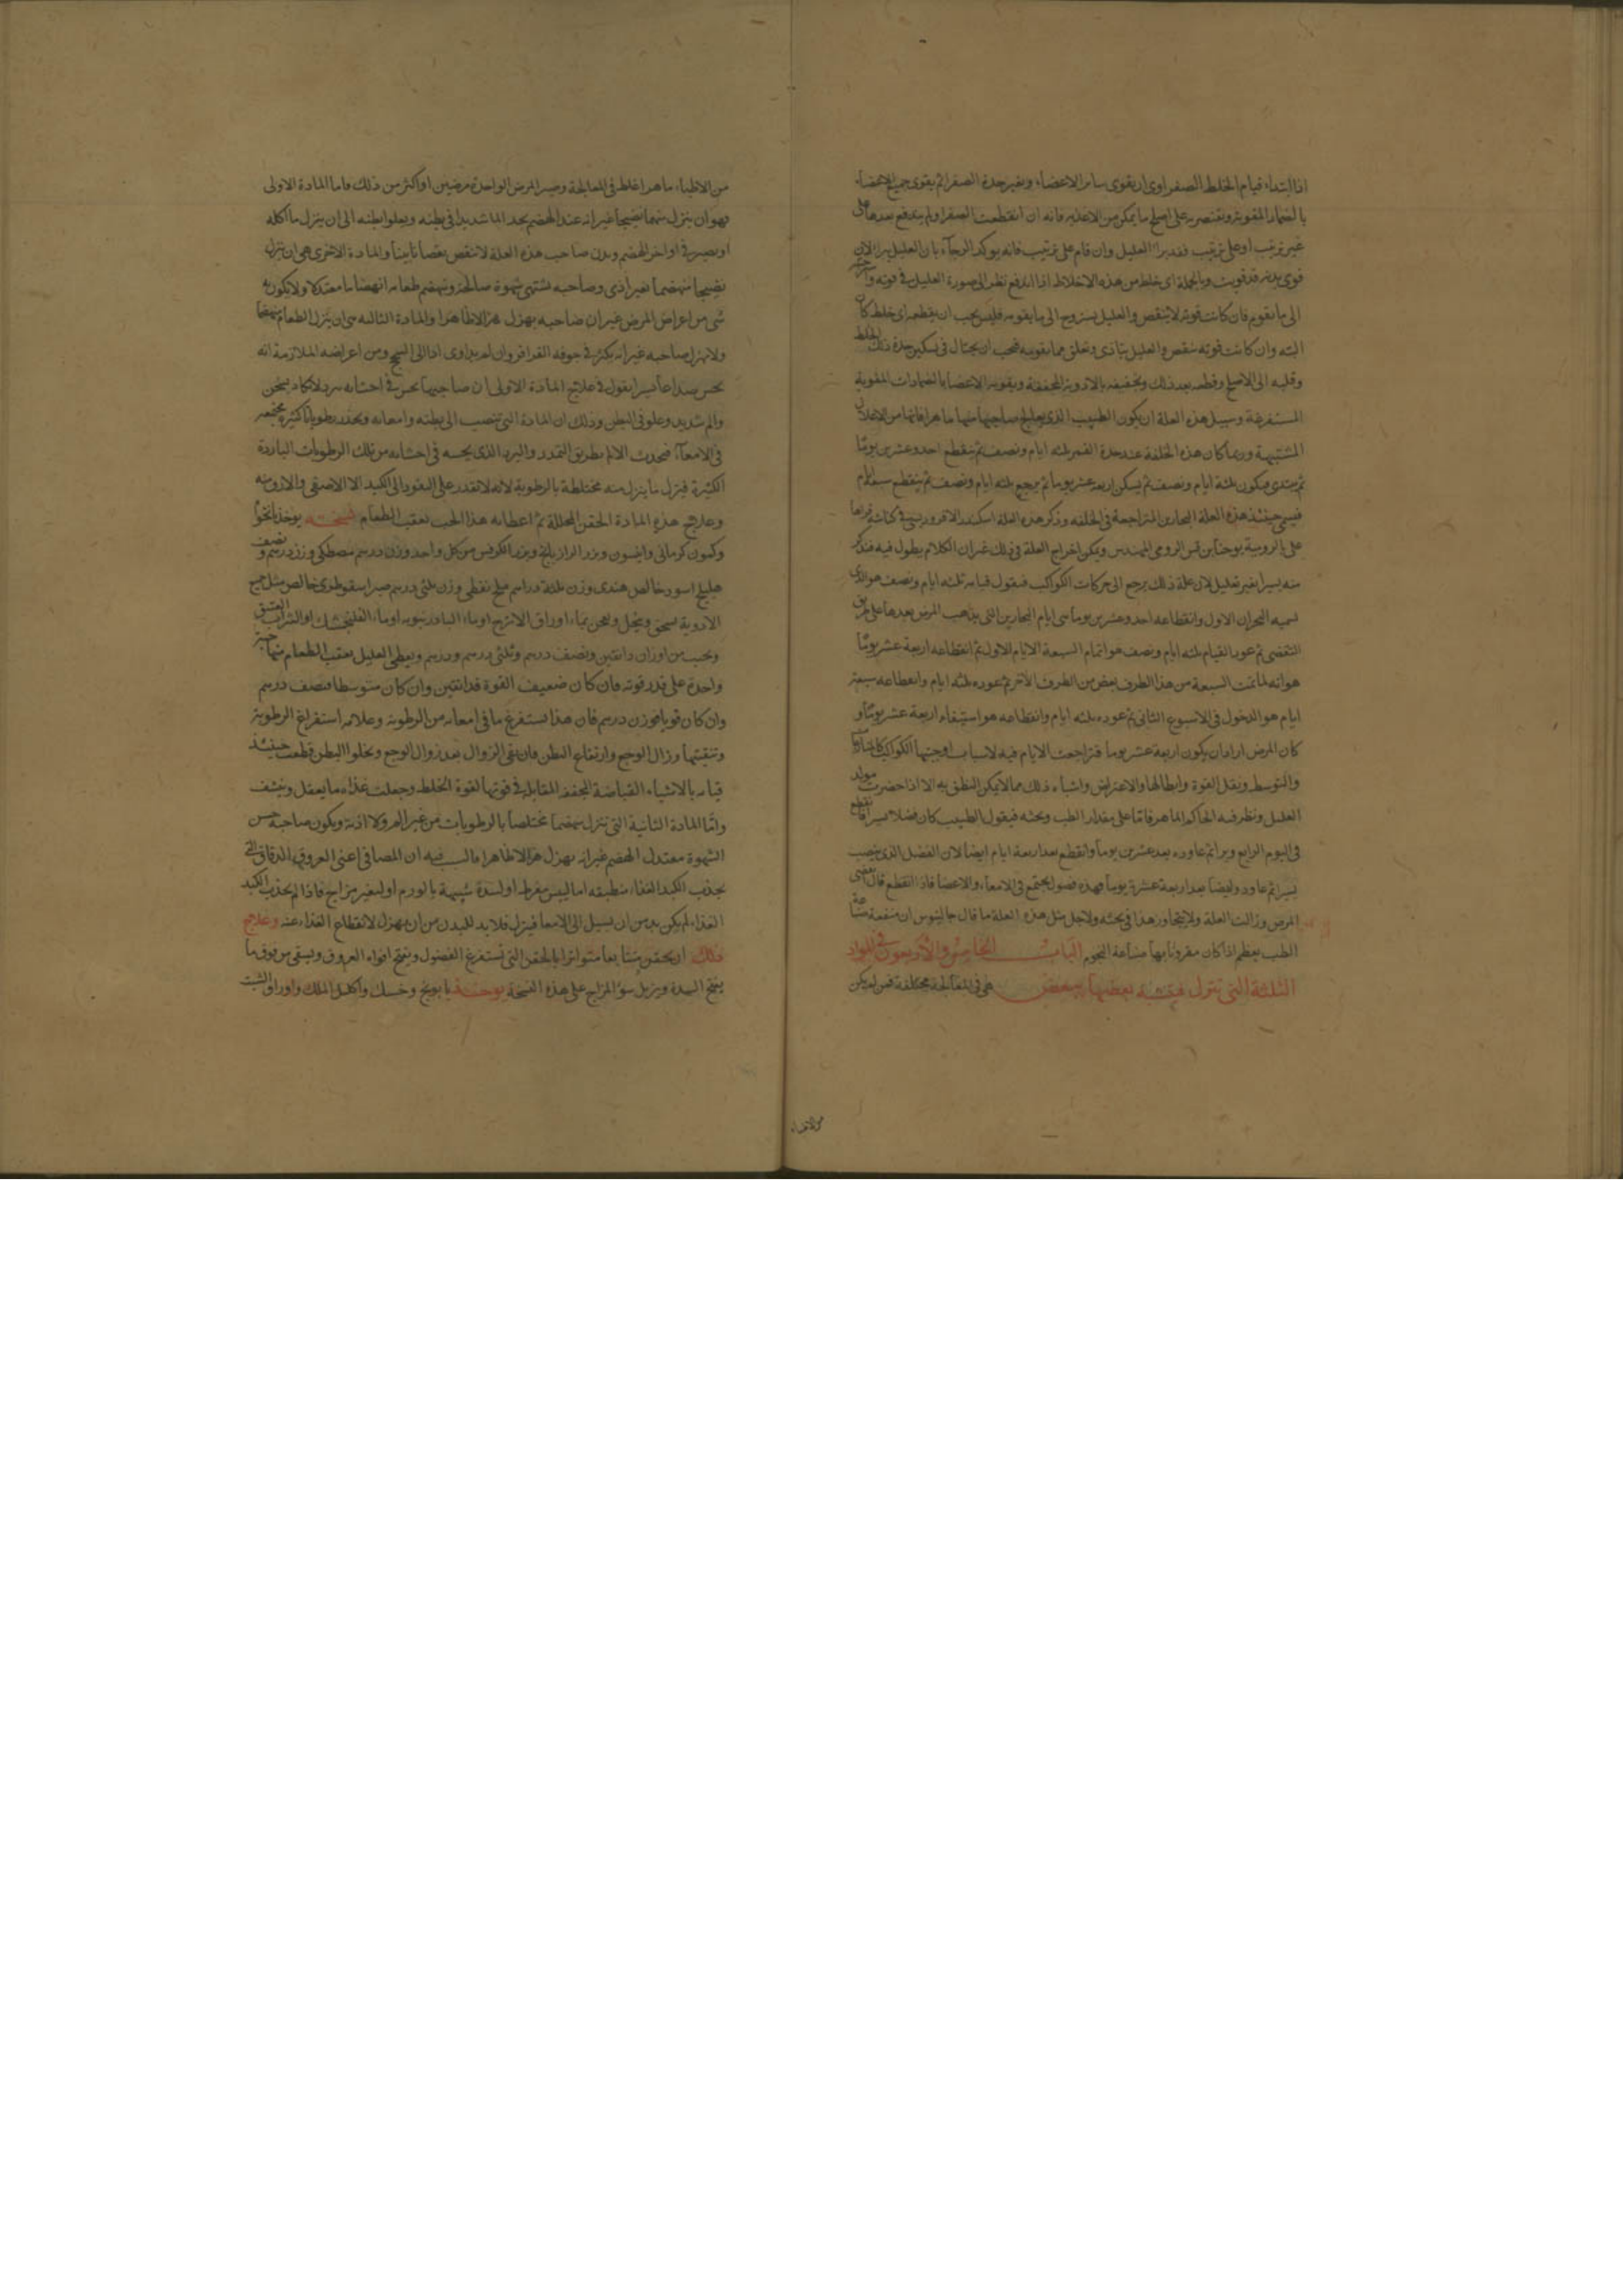 اذا ابتداء قيام الخلط الصفراوى ان يقوى ساير الاعضاء ويغير حدة الصفرا ثم يقوى جميع الاعضاء
بالضماد المقوية ويقتصر به على اصلح ما يمكن من الاغذية فانه ان انقطعت الصفرا ولم يندفع بعدها على
غير ترتيب او على ترتيب فقد برا العليل وان قام على ترتيب فانه يوكد الرجآء بان العليل يبرا لان
قوى بدنه قد قويت وبالجملة اى خلط من هذه الاخلاط اذا اندفع نظر الى صورة العليل فى قوته
الى ما تقوم فان كانت قوته لا تنقص والعليل يستروح الى ما يقومه فليس يجب ان يقطعه اى خلط كان
البته وان كانت قوته تنقص والعليل يتاذى ويقلق مما يقومه فيجب ان يحتال فى تسكين حدة ذلك الخلط
وقلبه الى الاصلح وقطعه بعد ذلك وتجفيفه بالادوية المجففة وتقوية الاعضا بالضمادات المقوية
المستفرغة وسبيل هذه العلة ان يكون الطبيب الذى يعالج صاحبها منها ماهرا فانها من الاعلال
المشتبهة وربما كان هذه الخلفة عند حدة القمر ثلثه ايام ونصف ثم ينقطع احد وعشرين يوما
ثم يبتدى فيكون ثلثة ايام ونصف ثم يسكن اربعه عشر يوما ثم يرجع ثلثه ايام ونصف ثم ينقطع سبعة ايام
فيسمى حينئذ هذه العلة البحارين المتراجعة فى الخلفه وذكر هذه العلة اسكندر الافروديسى فى كتابه
على بالرومية يوحنا بن قس الرومى المهندس ويمكن اخراج العلة فى ذلك غير ان الكلام يطول فيه فنذكر
منه يسيرا بغير تعليل لان علة ذلك يرجع الى حركات الكواكب فنقول قيامه ثلثه ايام ونصف هو الذى
نسميه البحران الاول وانقطاعه احد وعشرين يوما هى ايام البحارين التى يذهب المرض بعدها على طريق
التقضى ثم عود القيام ثلثه ايام ونصف هو اتمام السبعة الايام الاول ثم انقطاعه اربعة عشر يوما
هو انه لما تمت السبعة من هذا الطرف نقص من الطرف الاخر ثم عوده ثلثه ايام وانقطاعه سبعة
ايام هو الدخول فى الاسبوع الثانى ثم عوده ثلثه ايام وانقطاعه هو استيفاء اربعة عشر يوما و
كان المرض اراد ان يكون اربعة عشر يوما فتراجعت الايام فيه لاسباب اوجبتها الكواكب
والتوسط وبقل القوة وابطالها والاعتراض واشباه ذلك مما لا يمكن النطق به الا اذا حضرت مولد
العليل ونظر فيه الحاكم الماهر فاما على مقدار الطب وبحثه فيقول الطبيب كان فضلا يسيرا
فى اليوم الرابع وبرا ثم عاوده بعد عشرين يوما وانقطع بعد اربعة ايام ايضا لان الفضل الذى ينصب
يسيرا ثم عاود وايضا بعد اربعة عشر يوما فهذه فضول يجتمع فى الامعاء والاعضا فاذا انقطع
المرض وزالت العلة ولا يتجاوز هذا فى بحثه ولاجل مثل هذه العلة ما قال جالينوس ان منفعة صناعة
الطب يعظم اذا كان مقرونا بها صناعة النجوم الباب الخامس والاربعون فى المواد
الثلثة التى تنزل فيشبه بعضها ببعض هى فى المعالجة مختلفة فمن لم يكن
من الاطباء ماهرا غلط فى المعالجة وصير المرض الواحد مرضين او اكثر من ذلك فاما المادة الاولى
فهو ان ينزل منهضما نضيجا غير انه عند الهضم يجد الما شديدا فى بطنه ويعلو بطنه الى ان ينزل ما اكله
او يصير فى اواخر الهضم وبدن صاحب هذه العلة لا تنقص نقصانا بينا والمادة الاخرى هى ان ينزل
نضيجا منهضما بغير اذى وصاحبه يشتهى شهوة صالحة وينهضم طعامه انهضاما معتدلا ولا يكون به
شى من اعراض المرض غير ان صاحبه يهزل هزالا ظاهرا والمادة الثالثه هى ان ينزل الطعام منهضما
ولا يهزل صاحبه غير انه يكثر فى جوفه القراقر وان لم يداوى ادا الى السحج ومن اعراضه الملازمة انه
يحس صداعا يسيرا فنقول فى علاج المادة الاولى ان صاحبها يحس فى احشايه بردا لا يكاد يسخن
والم شديد وعلو فى البطن وذلك ان المادة التى تنصب الى بطنه وامعايه وتحدر رطوباتا كثيرة مجتمعه
فى الامعآء فيحدث الالم بطريق التمدد والبرد الذى يحسه فى احشايه من تلك الرطوبات الباردة
الكثيرة فينزل ما ينزل منه مختلطة بالرطوبة لانه لا تقدر على النفوذ الى الكبد الا الاصفى والادونه
وعلاج هذه المادة الحقن المحللة ثم اعطايه هذا الحب بعقب الطعام نسخته يوخذ نانخواه
وكمون كرمانى وانيسون وبزر الرازيانج وبزر الكرفس من كل واحد وزن درهم مصطكى وزن درهم ونصف
هليلج اسود خالص هندى وزن ثلثة دراهم ملح نفطى وزن ثلثى درهم صبر اسقوطرى خالص مثل جميع
الادوية يسحق وينخل ويعجن بماء اوراق الاترج او ماء البادرنبويه او ماء الفلنجمشك او الشراب العتيق
ويحبب من اوزان دانقين ونصف درهم وثلثى درهم ودرهم ويعطى العليل بعقب الطعام منها حبة
واحدة على قدر قوته فان كان ضعيف القوة فدانقين وان كان متوسطا فنصف درهم
وان كان قويا فوزن درهم فان هذا يستفرغ ما فى امعايه من الرطوبة وعلامه استفراغ الرطوبة
وتنقيتها وزال الوجع وارتفاع البطن فان بقى الزوال بعد زوال الوجع ويخلو البطن قطعت حينئذ
قيامه بالاشياء القباضة المجففة المقابلة فى قوتها لقوة الخلط وجعلت غذاءه ما يعقل وينشف
وامّا المادة الثانية التى تنزل منهضما مختلطا بالرطوبات من غير الم ولا اذية ويكون صاحبه حسن
الشهوة معتدل الهضم غير انه يهزل هزالا ظاهرا فالسبب فيه ان المصافى اعنى العروق الدقاق التى
يجذب الكبد الغذاء منطبقه اما ليبس مفرط او لسدة شبيهة بالورم او لتغير مزاج فاذا لم يجذب الكبد
الغذاء لم يكن بد من ان يسيل الى الامعا فينزل فلا بد للبدن من ان يهزل لانقطاع الغذاء عنه وعلاج
ذلك ان يحقن متتابعا متواترا بالحقن التى تستفرغ الفضول ويفتح افواه العروق ويسقى من فوق ما
يفتح السدة ويزيل سوء المزاج على هذه النسخة يوخذ بابونج وخسك واكليل الملك واوراق الشبت